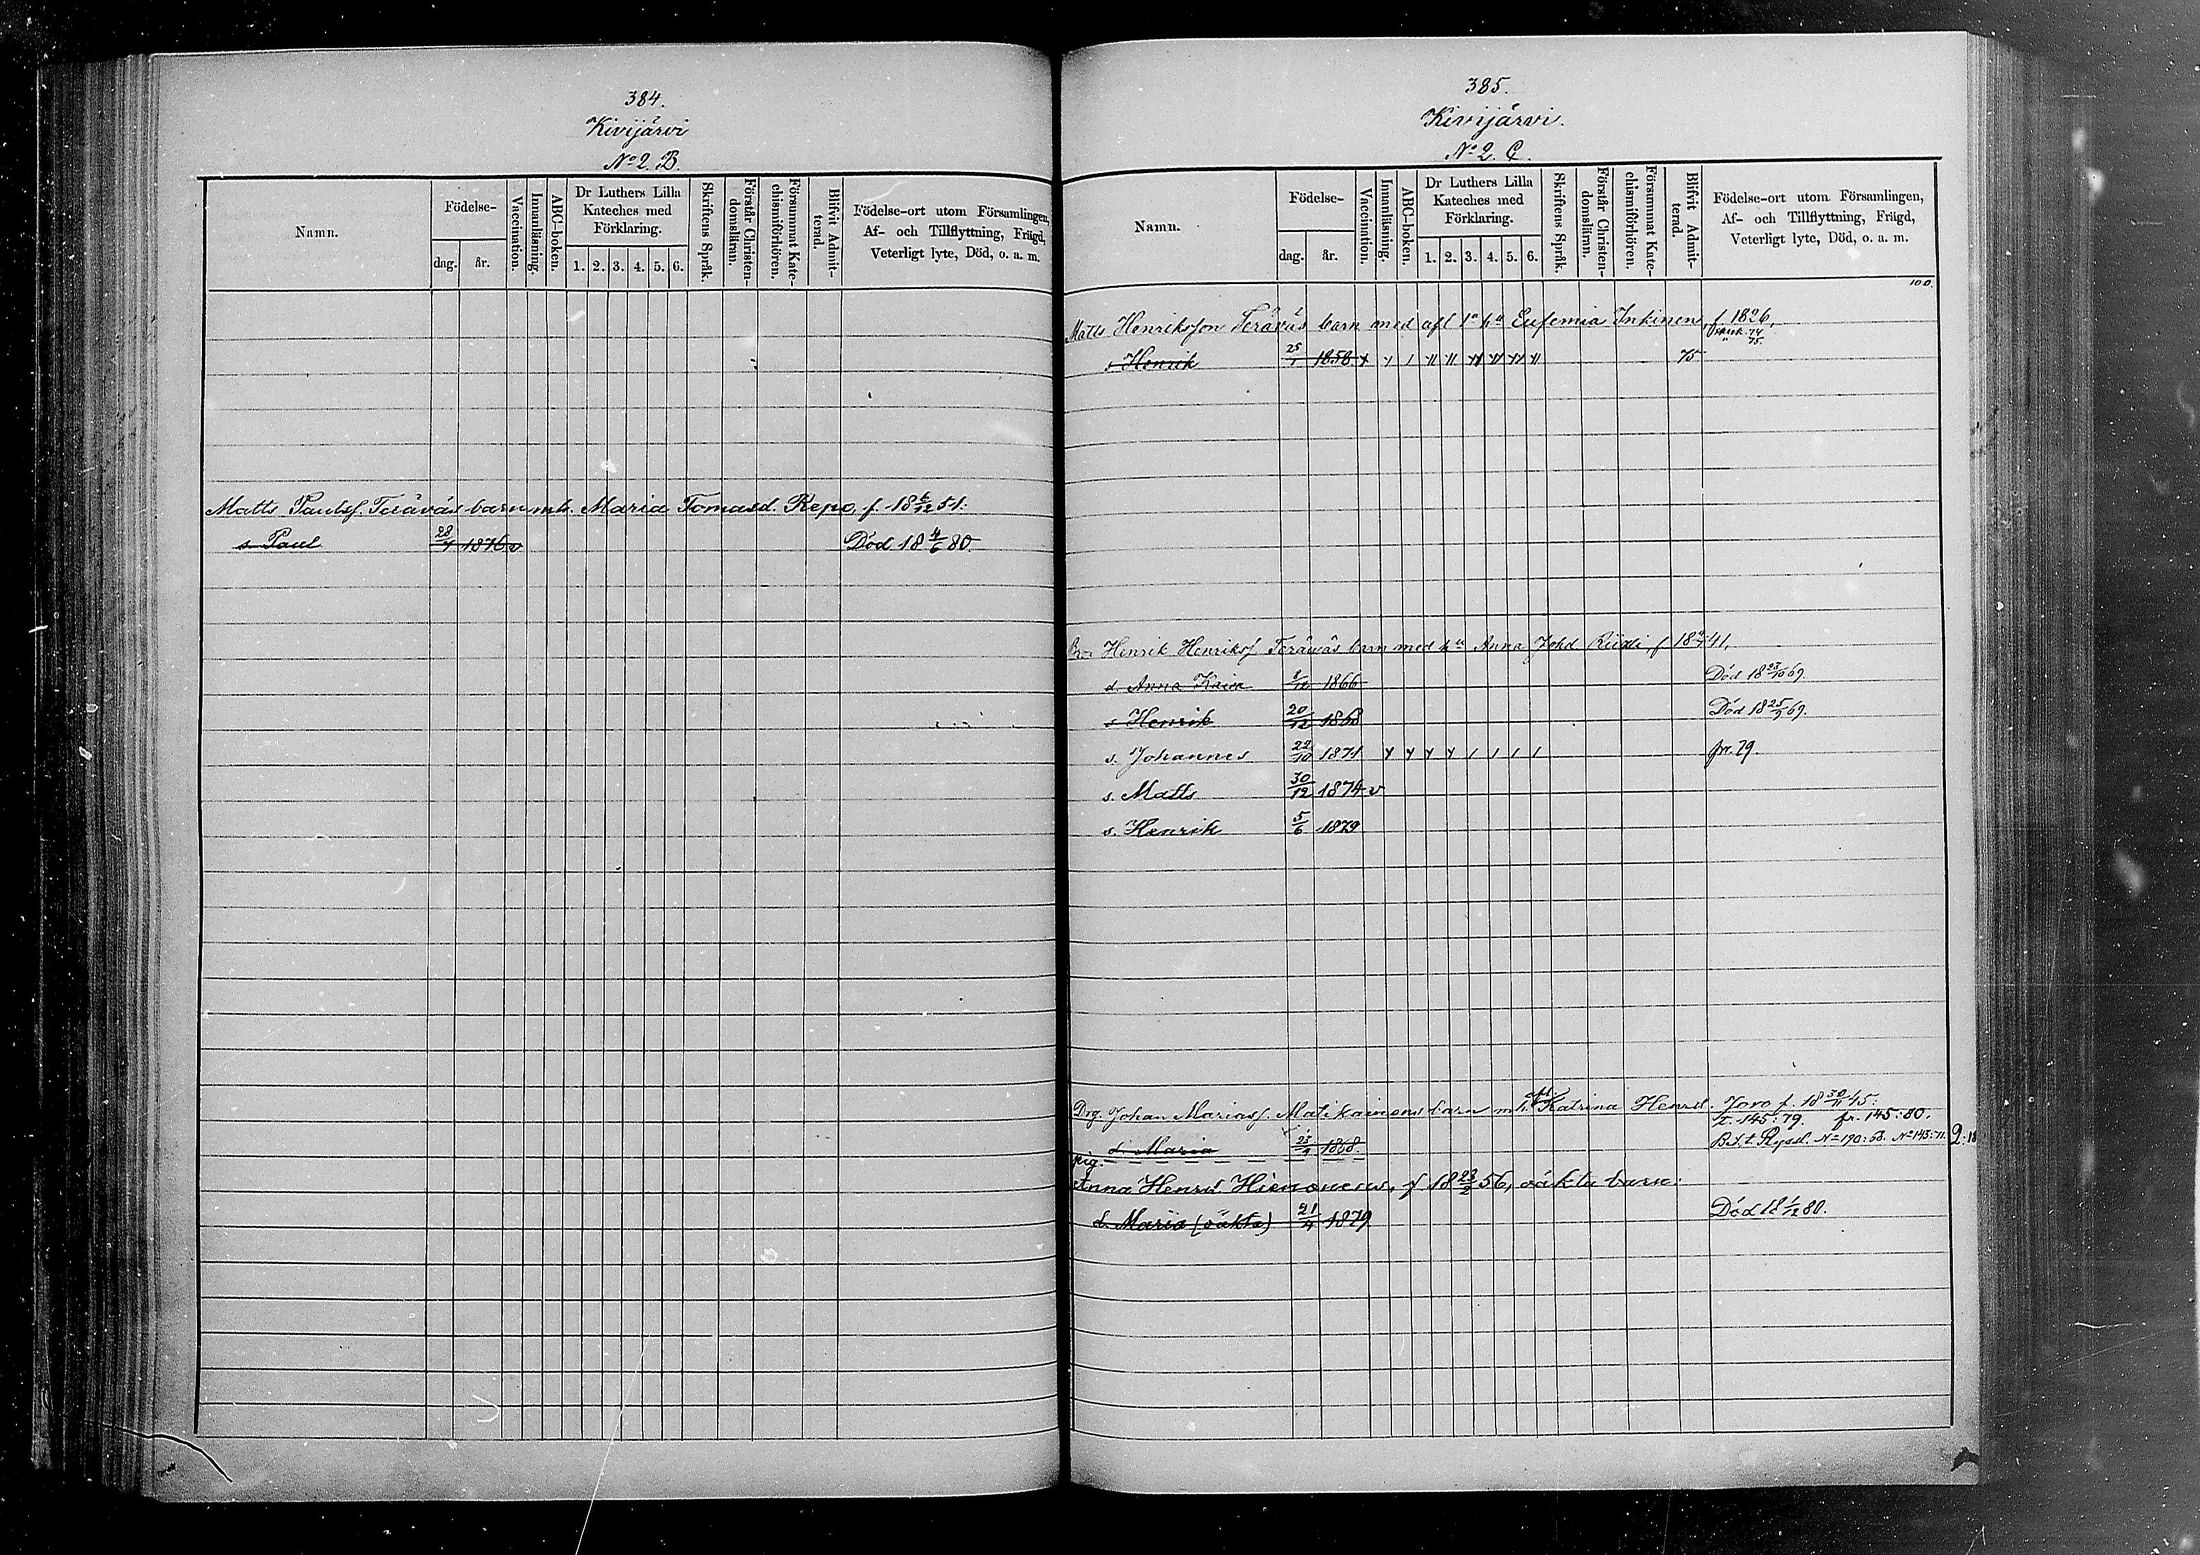 384.
Kivijärvi
No 2. B.
Namn.
Födelse-
dag.
år.
Vaccination.
Innanläsning.
ABC-boken.
Dr Luthers Lilla
Kateches med
Förklaring.
1. 2. 3. 4. 5. 6.
Skriftens Språk.
Förstår Christen-
domsläran.
Försummat Kate-
chismiförhören.
Blifvit Admit-
terad.
Födelse-ort utom Församlingen,
Af- och Tillflyttning, Frägd,
Veterligt lyte, Död, o. a. m.
Matts Paulsf. Teräväs barn mh. Maria Tomasd. Repo, f. 18 6/12 51.
s. Paul 28/4 1876 v Död 18 4/6 80.
385.
Kivijärvi.
No 2. C.
Namn.
Födelse-
dag.
år.
Vaccination.
Innanläsning.
ABC-boken.
Dr Luthers Lilla
Kateches med
Förklaring.
1. 2. 3. 4. 5. 6.
Skriftens Språk.
Förstår Christen-
domsläran.
Försummat Kate-
chismiförhören.
Blifvit Admit-
terad.
Födelse-ort utom Församlingen,
Af- och Tillflyttning, Frägd,
Veterligt lyte, Död, o. a. m.
100.
Matts Henriksson Teräväs barn med afl 1a hu Eufemia Inkinen, f 1826,
74
75.
s Henrik 25/1 1858. 75
Bro. Henrik Henriksf Teräväs barn med hu Anna Johd f 18 41,
d. Anna Kaisa 1866 Död 18 23/10 69.
s Henrik 20/12 1868 Död 18 25/9 69.
s. Johannes 22/10 1871 fr. 79.
s. Matts 30/12 1874 v
s. Henrik 5/6 1879
Drg. Johan Mariasf. Matikainens barn m h. Katrina Henrsd. Jovo f. 18 30/11 45.
t. 145:79. fr. 145:80.
d. Maria 1868. B.f.t. Ryssl. No 190:68. No 143:71. 2:18
pig.
Anna Henrsd. Hienonens, f. 18 23/2 56, oäkta barn:
d. Maria (oäkta) 21/4 1879 Död 18 1/12 80.